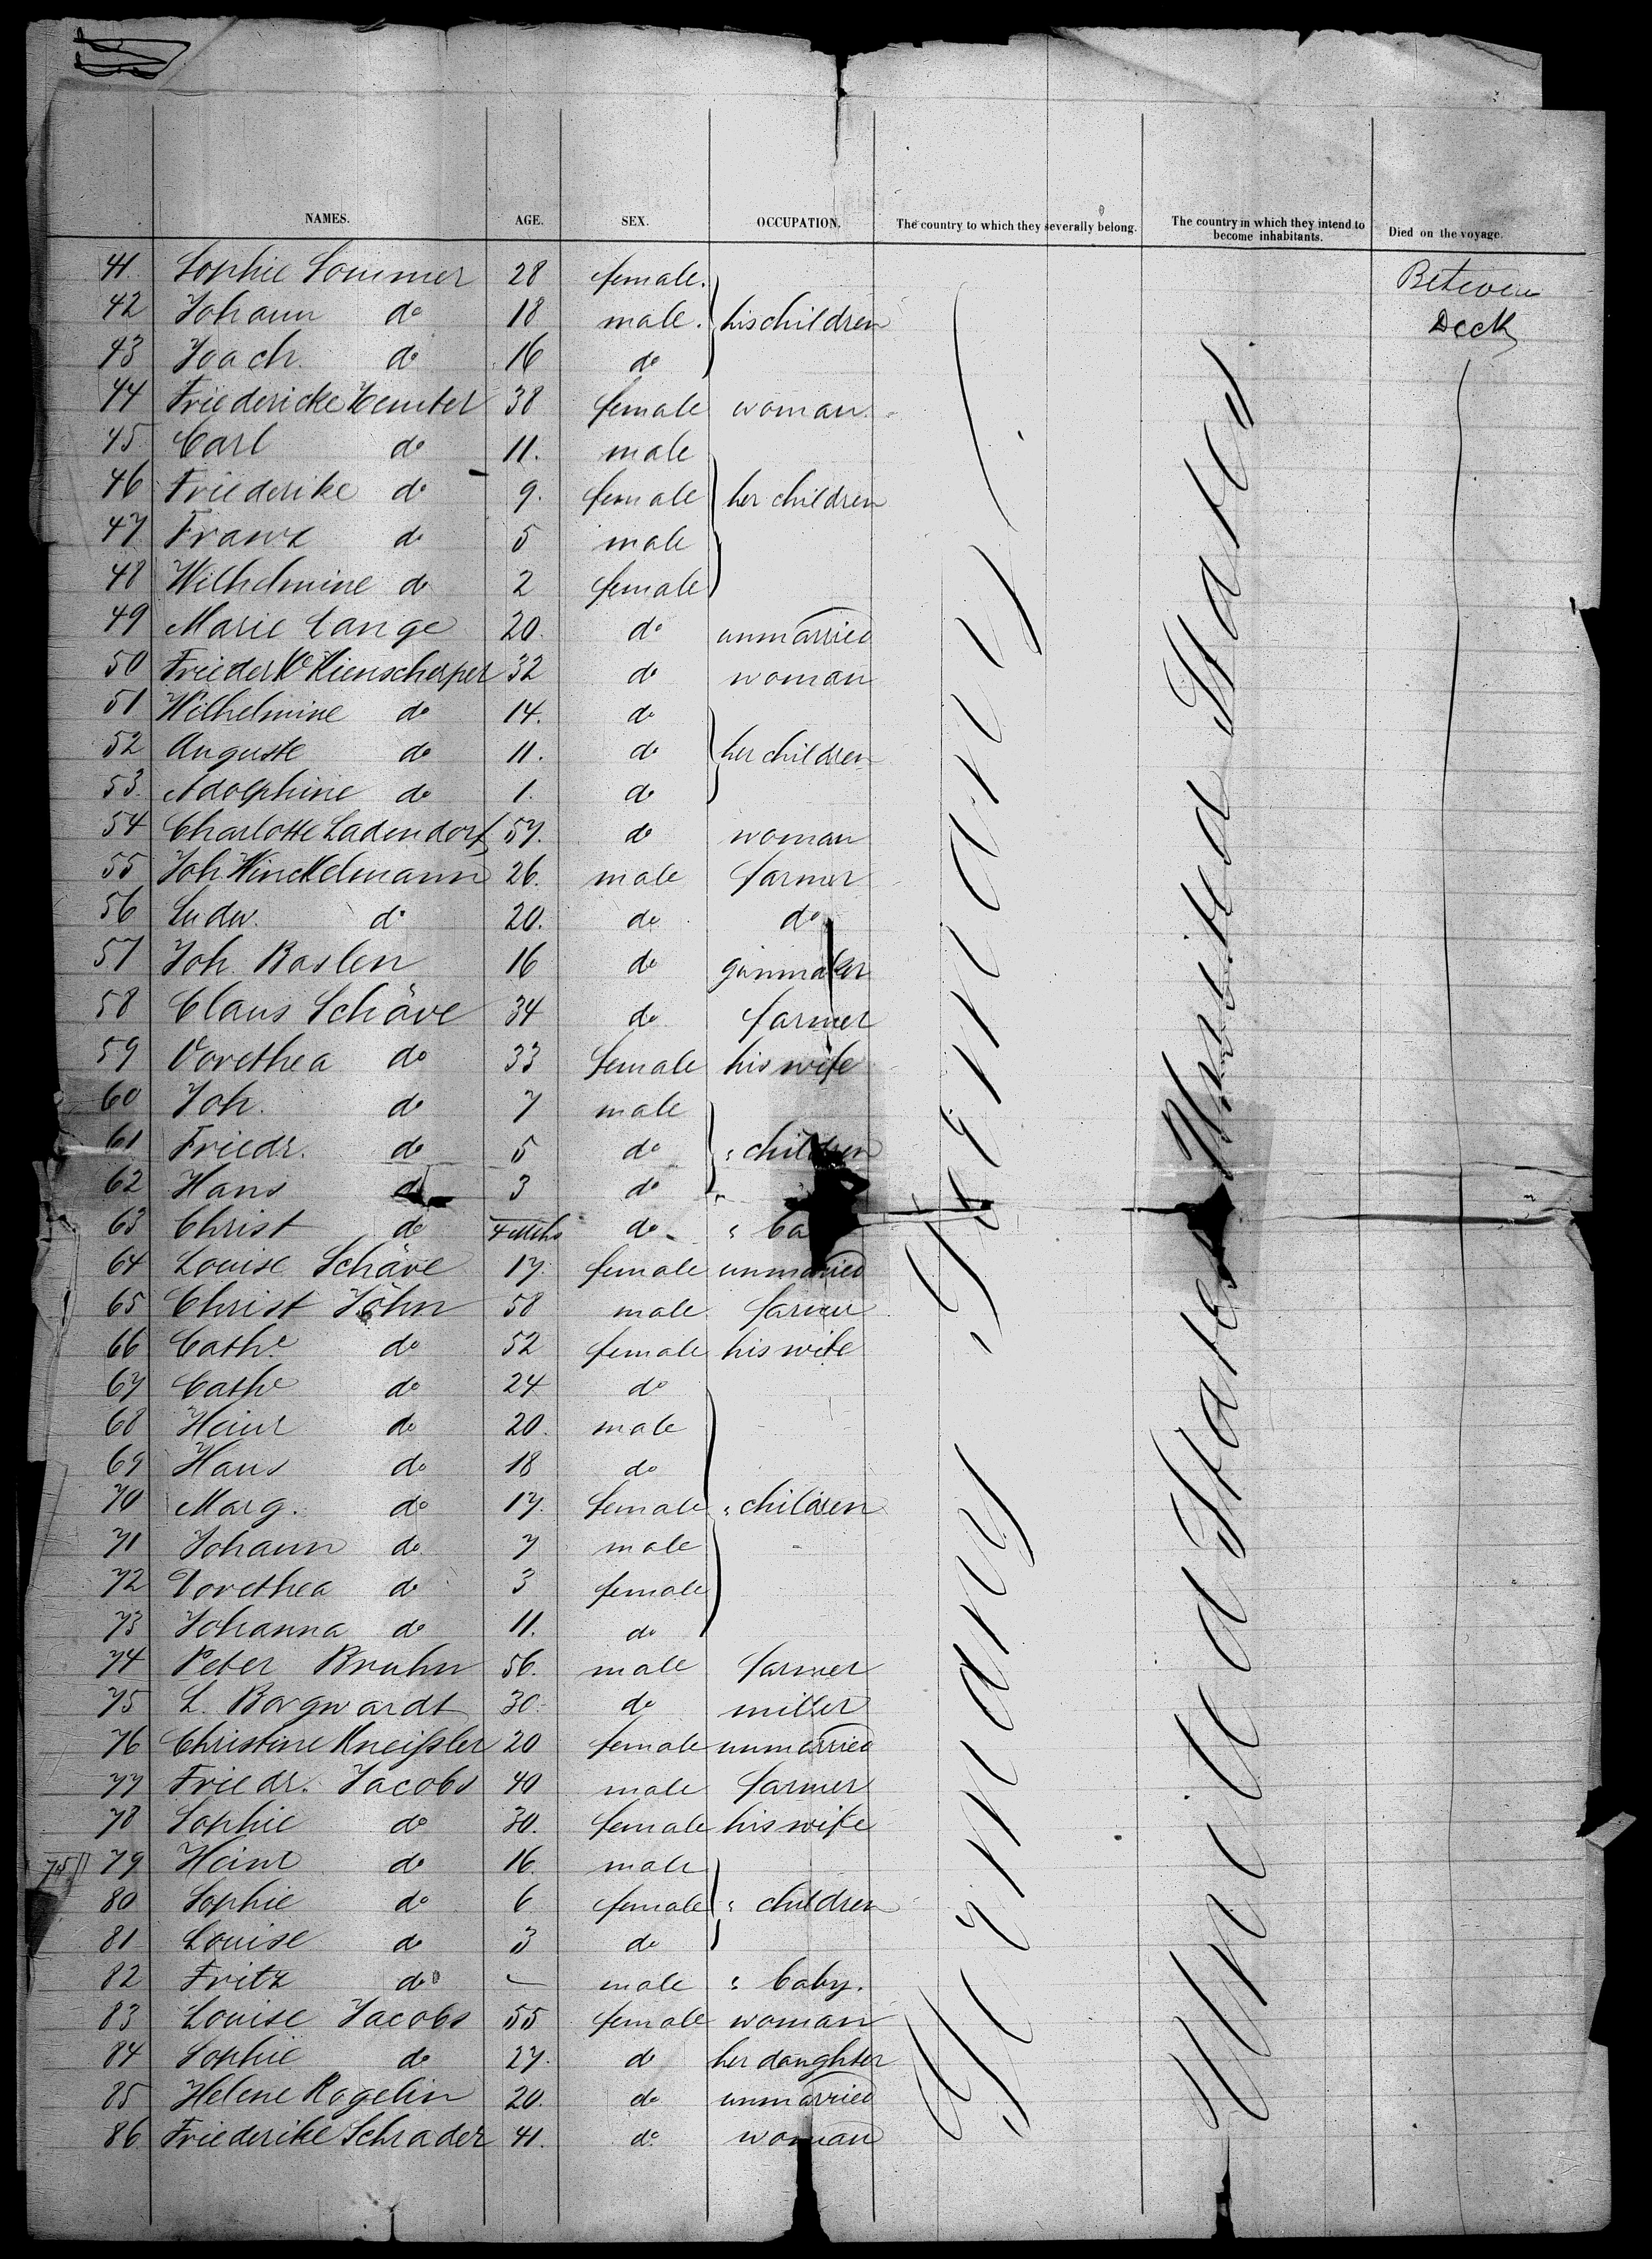 NAMES. AGE. SEX. OCCUPATION. The country to which they severally belong. The country in which they intend to become inhabitants. Died on the voyage.
41 Sophie Sommer 28 female.
42 Johann do 18 male. his children
43 Joach. do 16 do
44 Friedericke 38 female woman
45 Carl do 11. male
46 Friederike do 9. female her children
47 Franz do 5 male
48 Wilhelmine do 2 female
49 Marie Lange 20. do unmarried
50 Frieder 32 do woman
51 Wilhelmine do 14. do
52 Auguste do 11. do her children
53 Adolphine do 1. do
54 Charlotte Ladendorf 57. do woman
55 Joh Winckelmann 26. male farmer
56 Ludw. do 20. do do
57 Joh. Baslen 16 do gunmaker
58 Claus Schäve 34 do farmer
59 Dorethea do 33 female his wife
60 Joh. do 7 male
61 Friedr. do 5 do " children
62 Hans do 3 do
63 Christ do 4 mths do " ba
64 Louise Schäve 17. female unmarried
65 Christ Jöhn 58 male farmer
66 Cathe do 52 female his wife
67 Cathe do 24 do
68 Heinr do 20. male
69 Hans do 18 do
70 Marg. do 17. female " children
71 Johann do 7 male
72 Dorethea do 3 female
73 Johanna do 11. do
74 Peter Bruhn 56. male farmer
75 L. Borgwardt 30. do miller
76 Christine Kneißler 20 female unmarried
77 Friedr. Jacobs 40 male farmer
78 Sophie do 30. female his wife
79 Heinr do 16. male
80 Sophie do 6 female " children
81 Louise do 3 do
82 Fritz do — male " baby.
83 Louise Jacobs 55 female woman
84 Sophie do 27. do her daughter
85 Helene Rogelin 20. do unmarried
86 Friederike Schrader 41. do woman
Germany
Germany
United States
United States
Between
Deck